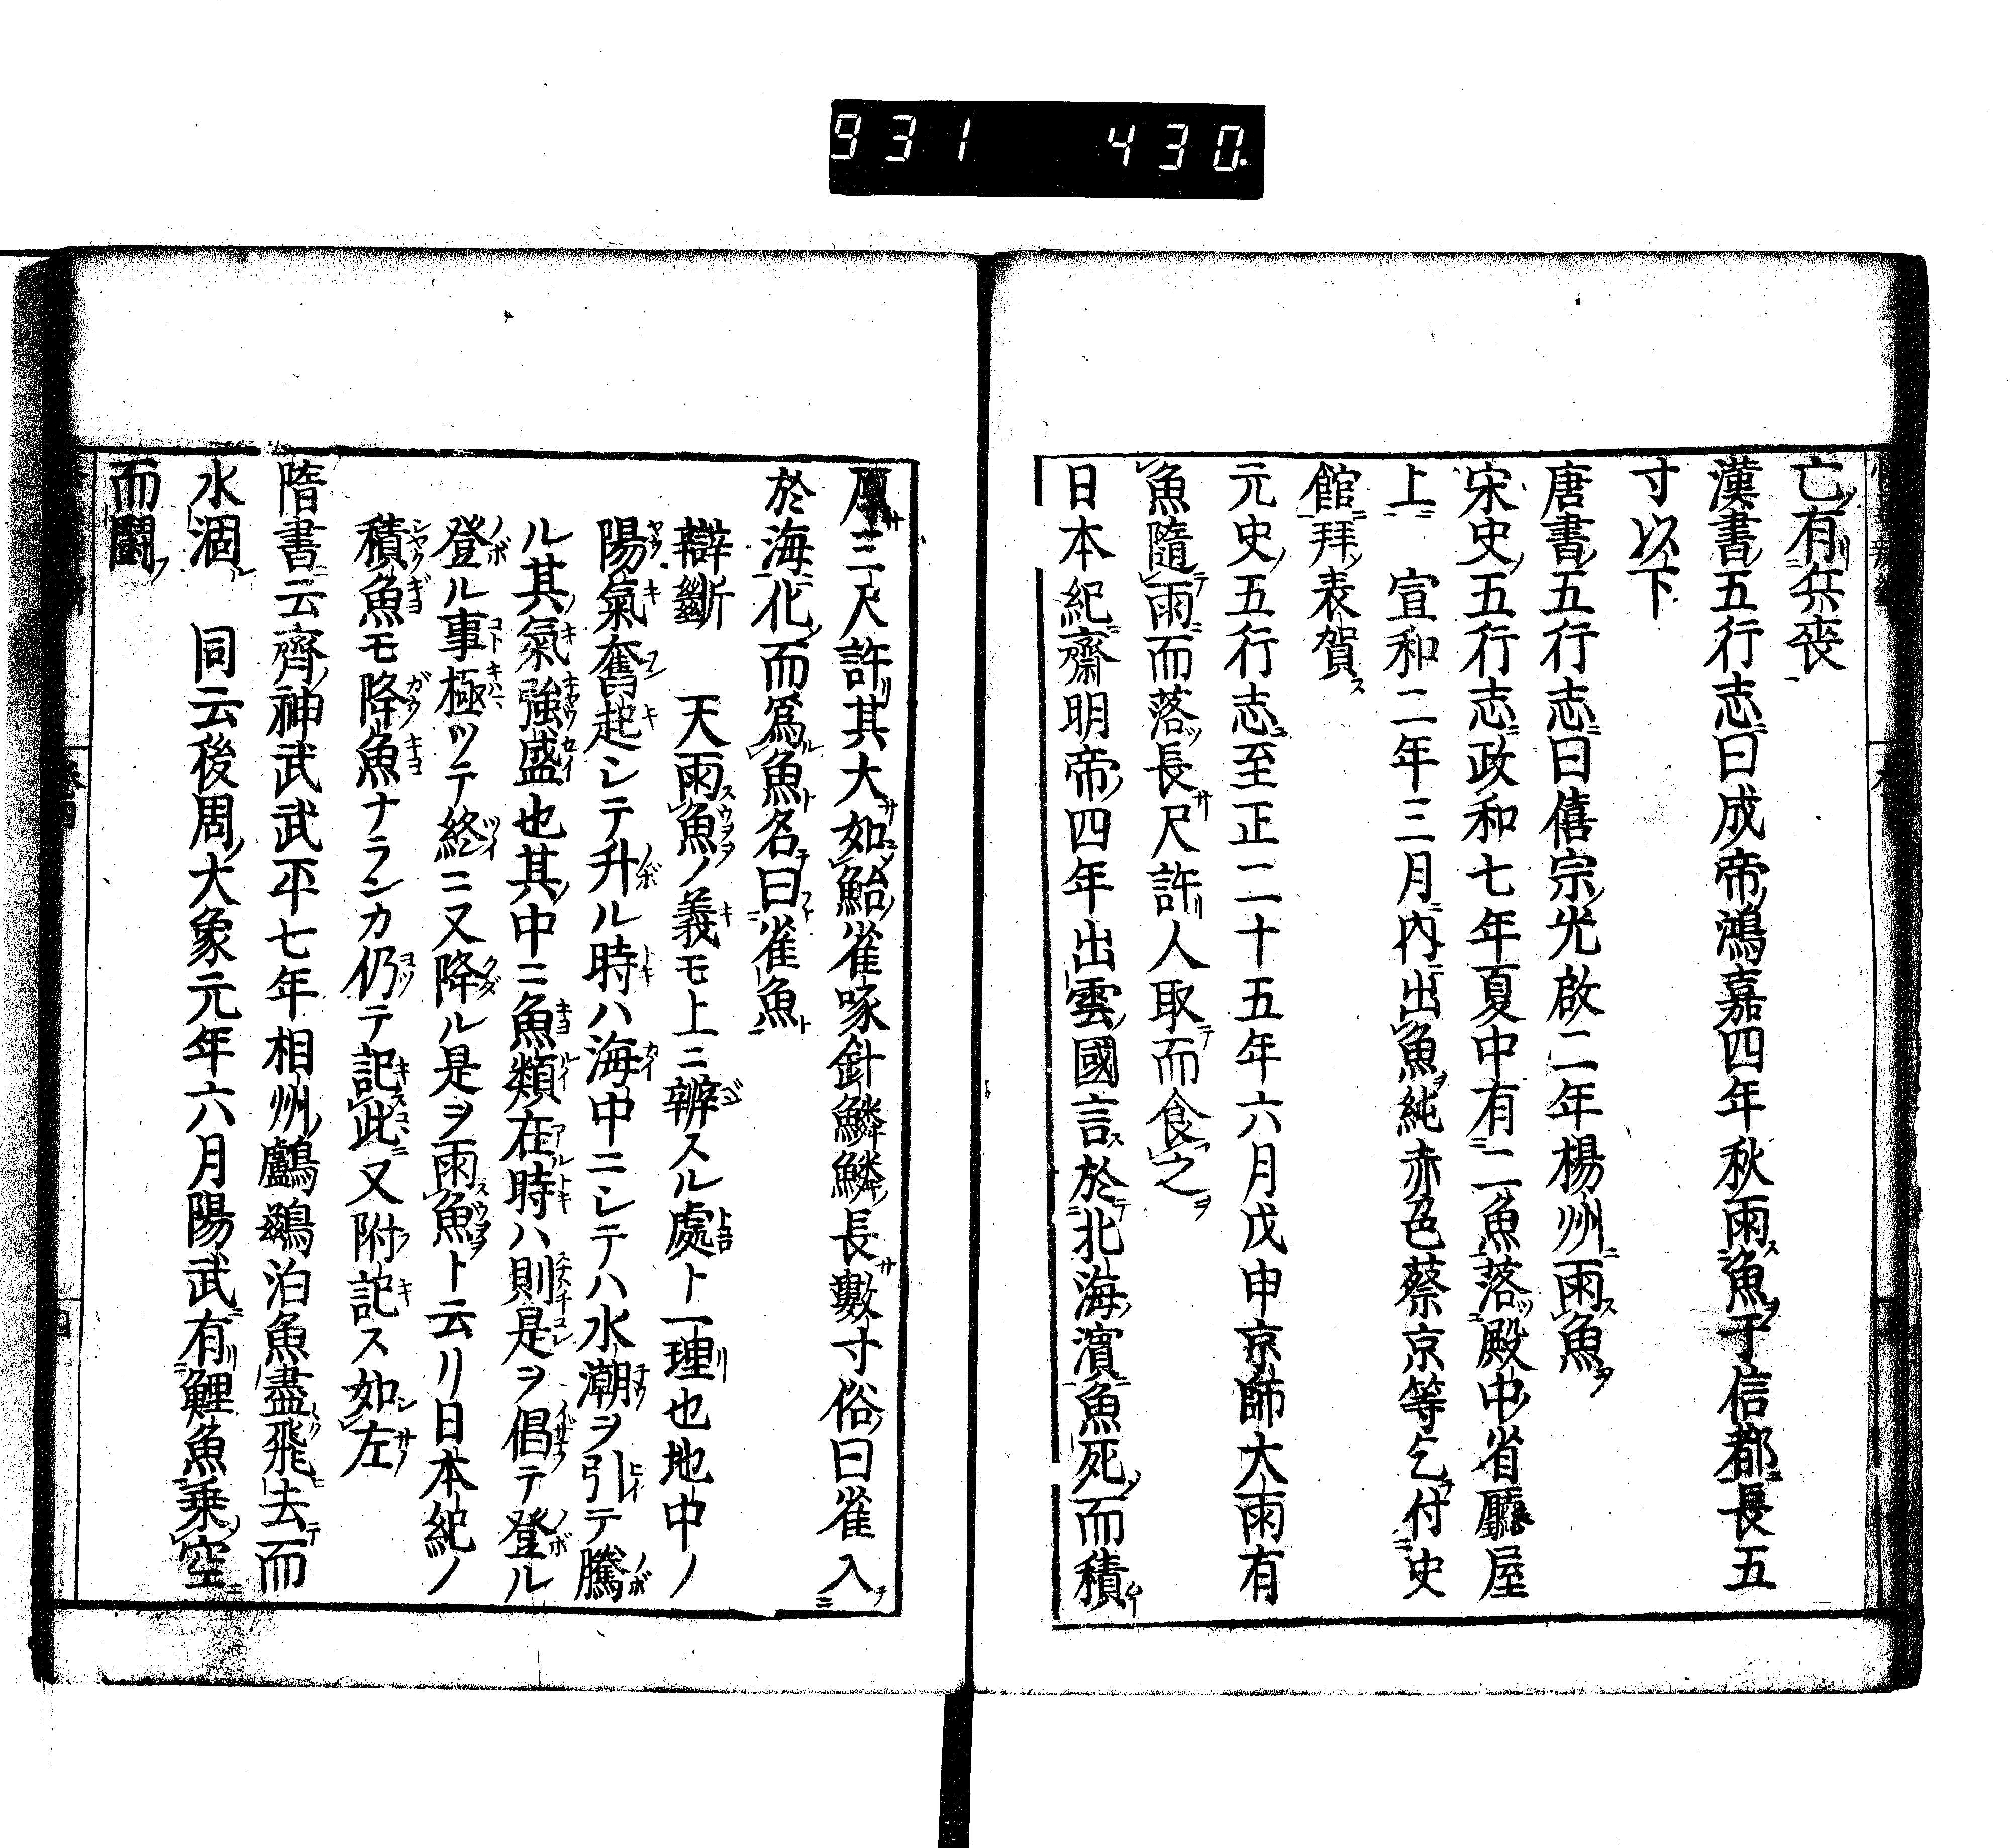 931 430.
亡有兵喪
漢書五行志曰成帝鴻嘉四年秋雨魚于信都長五
寸以下
唐書五行志曰僖宗光啟二年楊州雨魚
宋史五行志政和七年夏中有二魚落殿中省廳屋
上 宣和二年三月內出魚純赤色蔡京等乞付史
館拜表賀
元史五行志至正二十五年六月戊申京師大雨有
魚隨雨而落長尺許人取而食之
日本紀齋明帝四年出雲國言於北海濱魚死而積
厚三尺許其大如鮐雀啄針鱗鱗長數寸俗曰雀入
於海化而爲魚名曰雀魚
辯斷 天雨魚ノ義モ上ニ辨スル處ト一理也地中ノ
陽氣奮起シテ升ル時ハ海中ニシテハ水潮ヲ引テ騰
ル其氣強盛也其中ニ魚類在時ハ則是ヲ倡テ登ル
登ル事極ッテ終ニ又降ル是ヲ雨魚ト云リ日本紀ノ
積魚モ降魚ナランカ仍テ記此又附記ス如左
隋書云齊神武武平七年相州鸕鷀泊魚盡飛去而
水涸 同云後周大象元年六月陽武有鯉魚乗空
而鬪